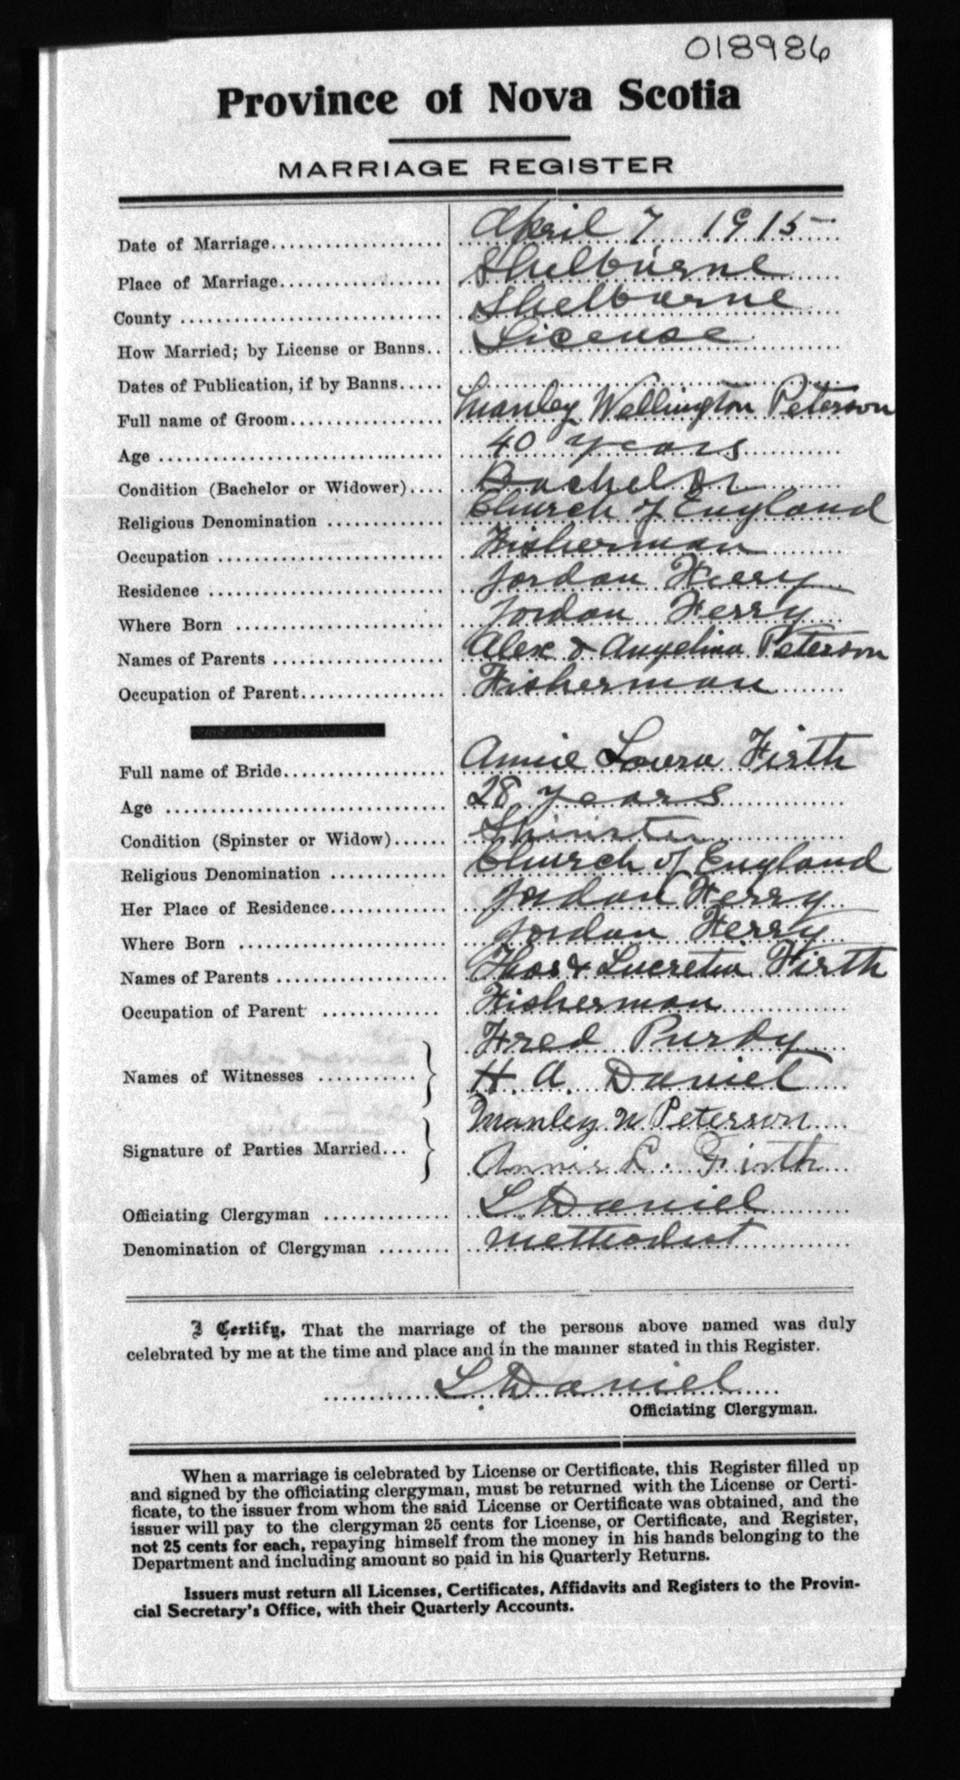 018986
Province of Nova Scotia
MARRIAGE REGISTER
Date of Marriage.................... April 7 1915
Place of Marriage................... Shelburne
County ............................. Shelburne
How Married; by License or Banns.. License
Dates of Publication, if by Banns.....
Full name of Groom................. Manley Wellington Peterson
Age ................................ 40 years
Condition (Bachelor or Widower).... Bachelor
Religious Denomination ............. Church of England
Occupation ......................... Fisherman
Residence .......................... Jordan Ferry
Where Born ........................ Jordan Ferry
Names of Parents ................... Alex & Angelina Peterson
Occupation of Parent................ Fisherman
Full name of Bride.................. Annie Loura Firth
Age ................................ 28 years
Condition (Spinster or Widow)...... Spinster
Religious Denomination ............. Church of England
Her Place of Residence............. Jordan Ferry
Where Born ........................ Jordan Ferry
Names of Parents ................... Thos & Lucretia Firth
Occupation of Parent ............. Fisherman
Fred Purdy
Names of Witnesses ........... H. A. Daniel
Manley W Peterson
Signature of Parties Married... Annie L. Firth
Officiating Clergyman .............. L Daniel
Denomination of Clergyman ........ Methodist
I Certify, That the marriage of the persons above named was duly
celebrated by me at the time and place and in the manner stated in this Register.
L Daniel
Officiating Clergyman.
When a marriage is celebrated by License or Certificate, this Register filled up
and signed by the officiating clergyman, must be returned with the License or Certi-
ficate, to the issuer from whom the said License or Certificate was obtained, and the
issuer will pay to the clergyman 25 cents for License, or Certificate, and Register,
not 25 cents for each, repaying himself from the money in his hands belonging to the
Department and including amount so paid in his Quarterly Returns.
Issuers must return all Licenses, Certificates, Affidavits and Registers to the Provin-
cial Secretary's Office, with their Quarterly Accounts.